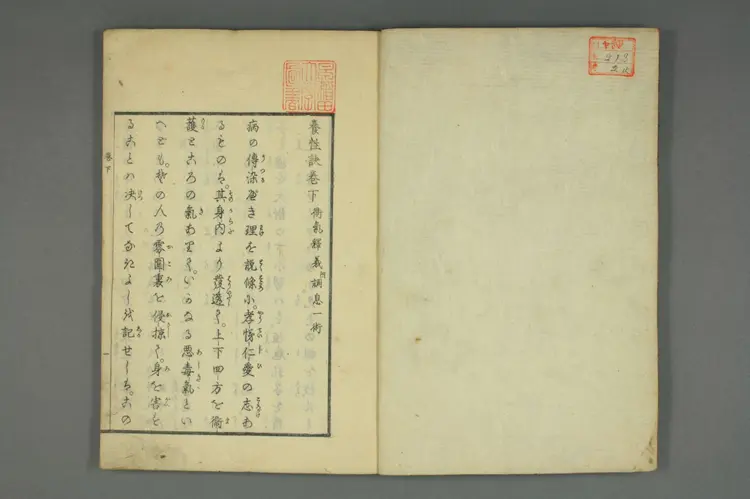 養性訣巻下 衛氣釋義 附調息一術
病の傳染すべき理を説條小。孝悌仁愛の志あ
るものは。其身内より發透て。上下四方を衛
護ところの氣ありて。いかなる惡毒氣とい
へども。その人の雰圍裏を侵掠て。身を害を
ることハ決してなきよしを記せしも。この
巻下
一